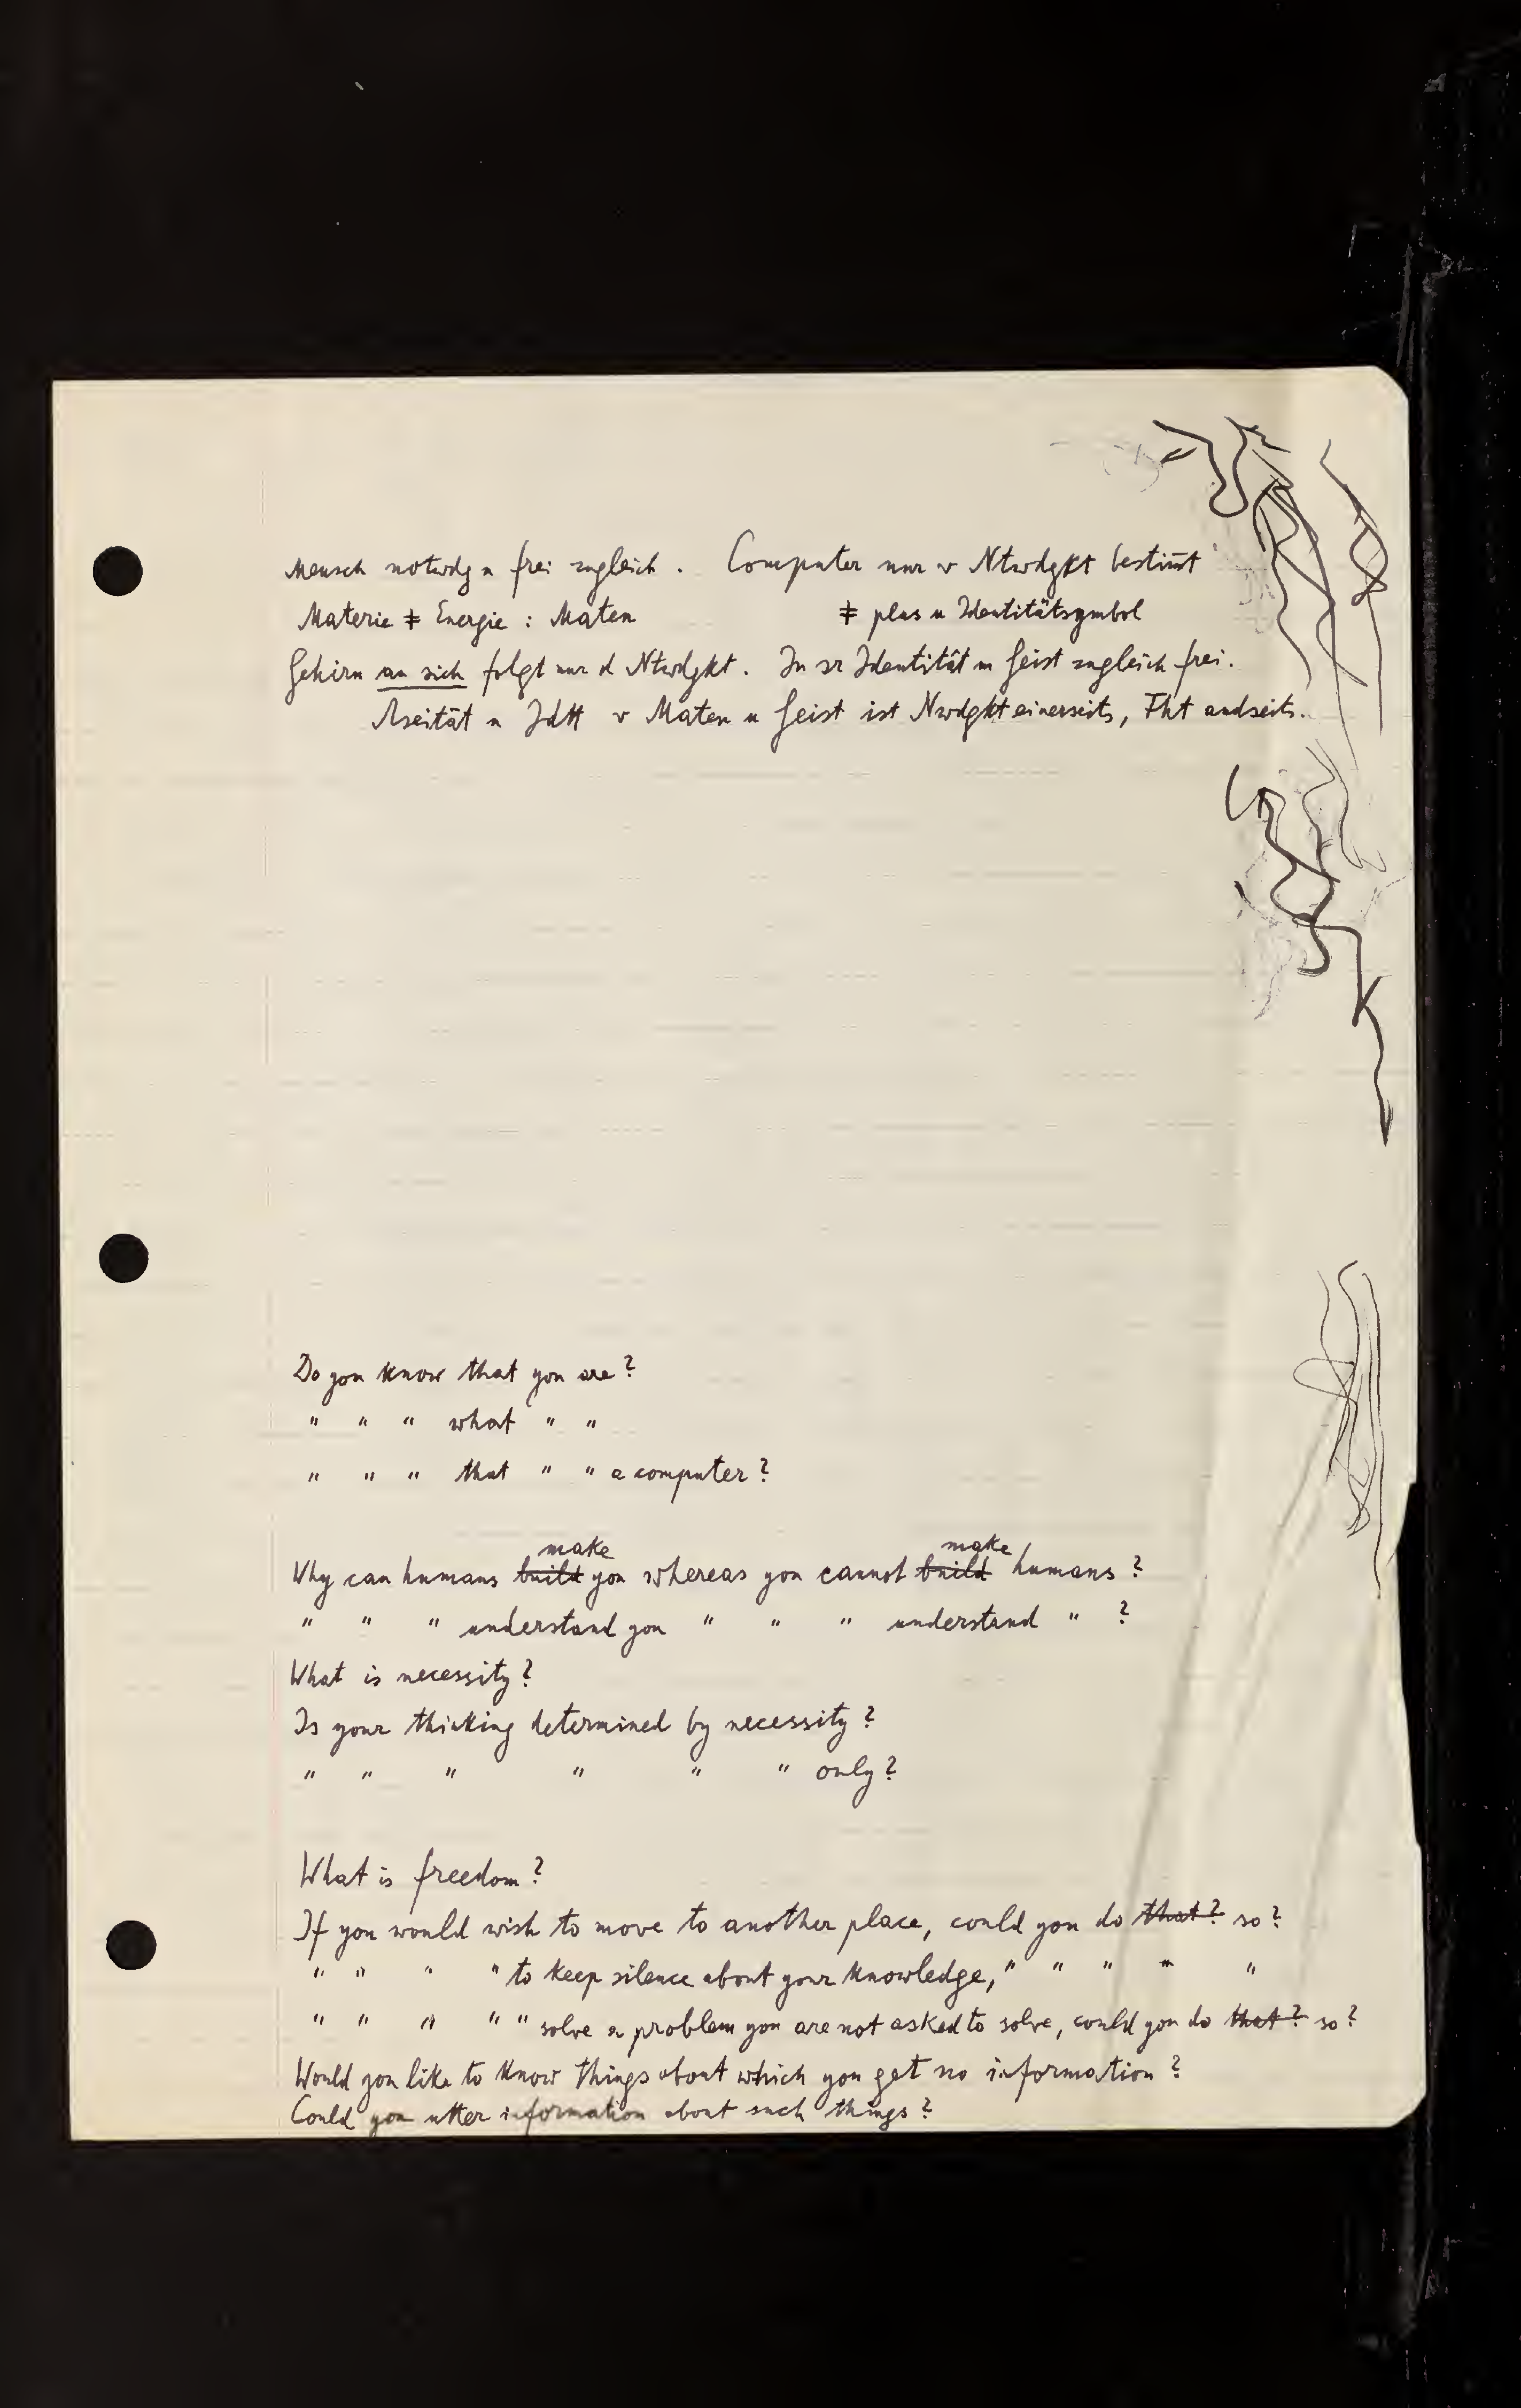 Mensch notwdg u frei zugleich. Computer nur v Ntwdgkt bestim̄t
Materie ‡ Energie : Maten ‡ plus u Identitätsymbol
Gehirn an sich folgt nur d Ntwdgkt. In sr Identität m Geist zugleich frei.
Aseität u Idtt v Maten u Geist ist Nwdgkt einerseits, Fht andseits.
Do you know that you are?
" " " what " "
" " " that " " a computer?
make make
Why can humans build you whereas you cannot build humans?
" " " understand you " " " understand " ?
What is necessity?
Is your thinking determined by necessity?
" " " " " " only?
What is freedom?
If you would wish to move to another place, could you do that? so?
" " " " to keep silence about your knowledge, " " " " "
" " " " " solve a problem you are not asked to solve, could you do that? so?
Would you like to know things about which you get no information?
Could you utter information about such things?